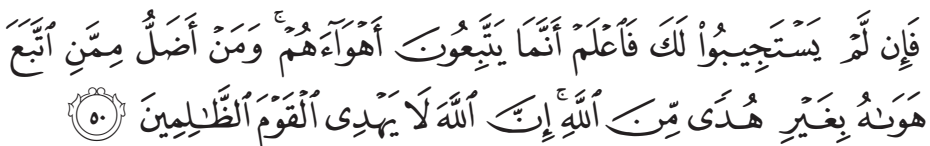 فَإِن لَّمْ يَسْتَجِيبُوا۟ لَكَ فَٱعْلَمْ أَنَّمَا يَتَّبِعُونَ أَهْوَآءَهُمْ ۚ وَمَنْ أَضَلُّ مِمَّنِ ٱتَّبَعَ
هَوَىٰهُ بِغَيْرِ هُدًى مِّنَ ٱللَّهِ ۚ إِنَّ ٱللَّهَ لَا يَهْدِى ٱلْقَوْمَ ٱلظَّـٰلِمِينَ ٥٠